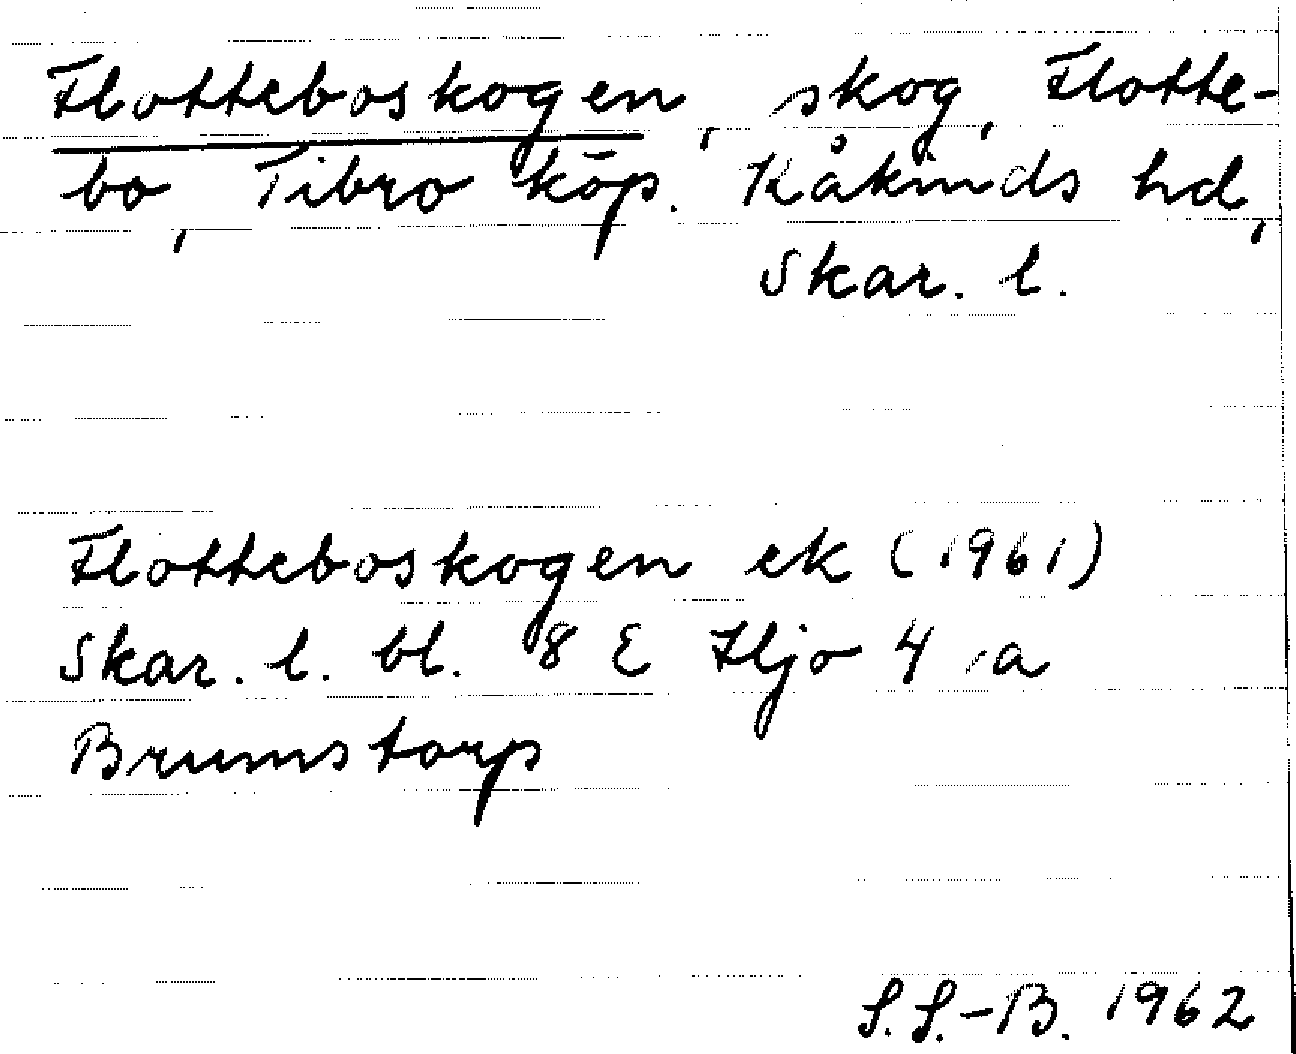 Flotteboskogen, skog, Flotte-
bo, Tibro köp. Kåkinds hd,
Skar. l.
Flotteboskogen ek (1961)
Skar. l. bl. 8 E Hjo 4 a
Brumstorp
S.S.-B. 1962